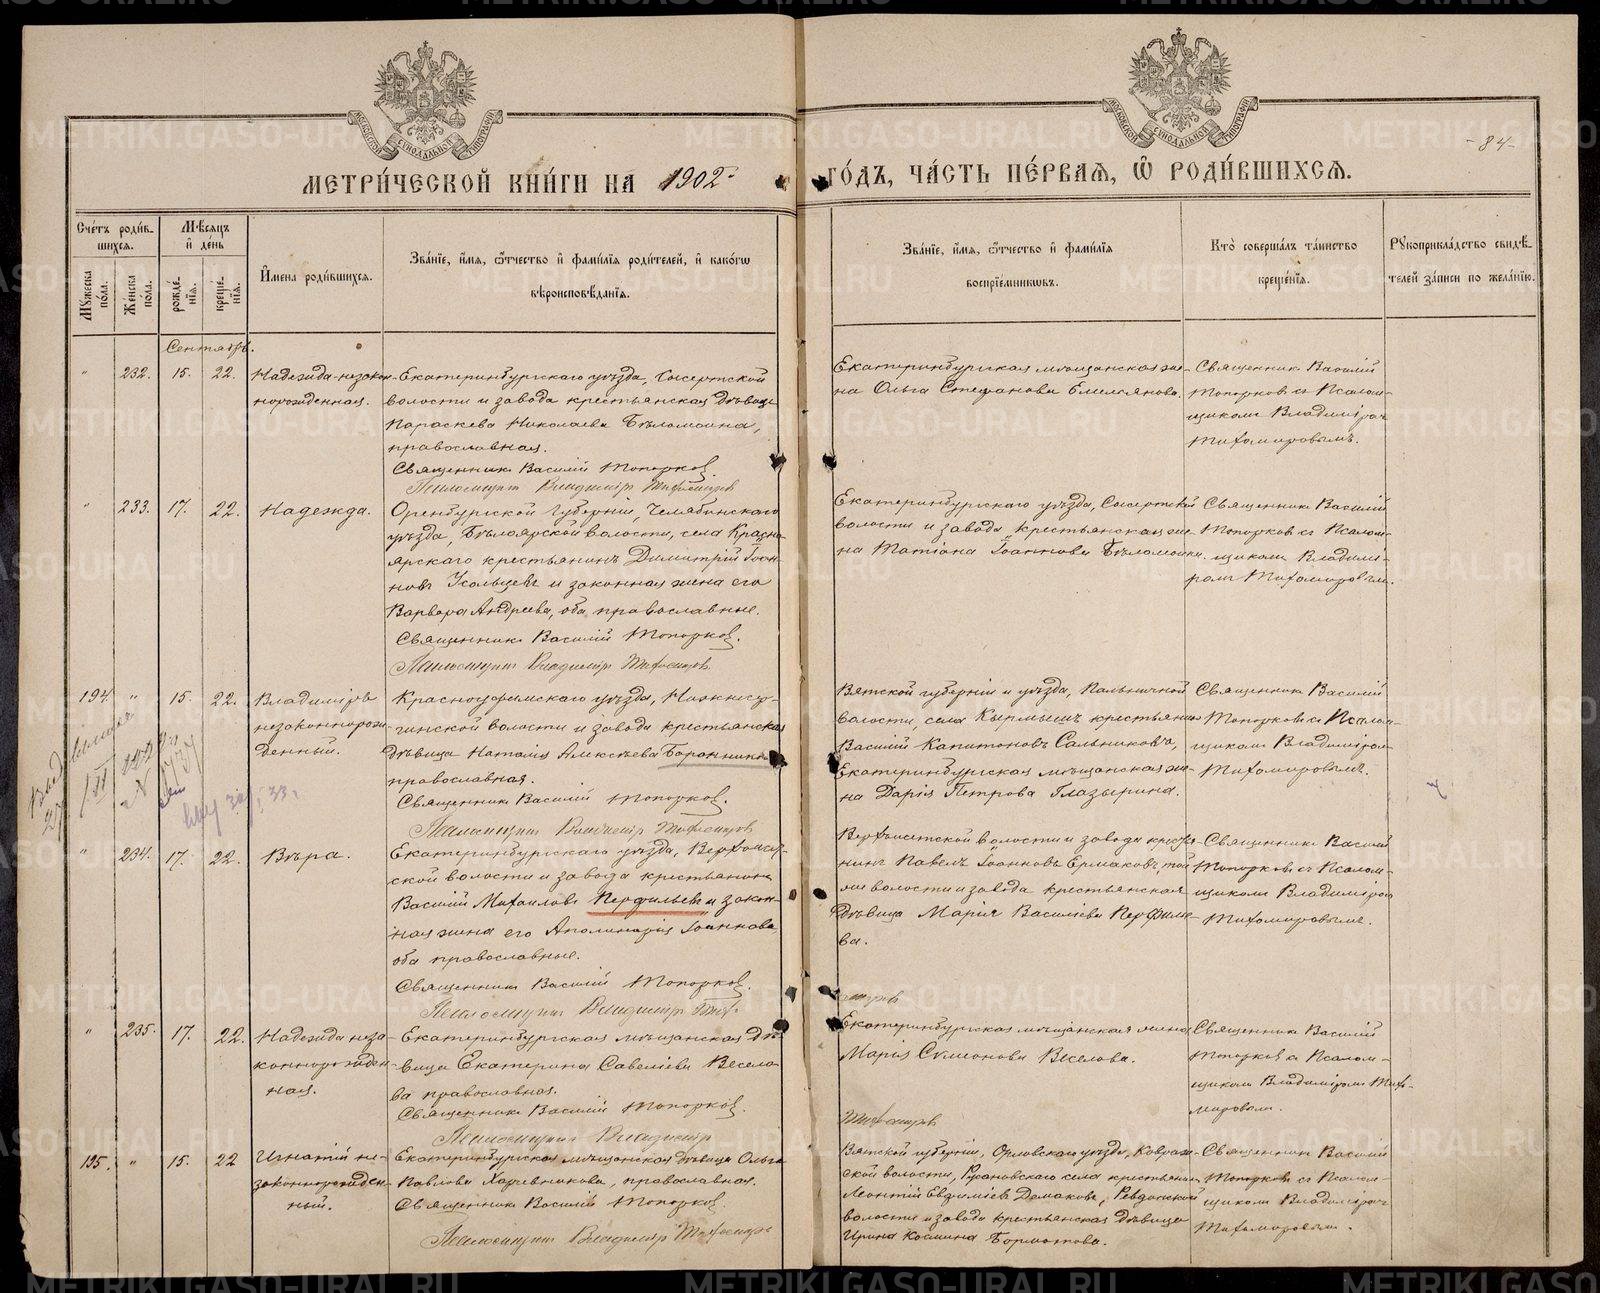 МЕТРИ́ЧЕСКОЙ КНИ́ГИ НА 1902 ГО́ДЪ, ЧА́СТЬ ПЕ́РВАѦ, Ѽ РОДИ́ВШИХСѦ.
-84-
Сче́тъ роди́в-
шихсѧ.
Мꙋжеска по́ла.
Же́нска по́ла.
Мѣсѧцъ
и҆ де́нь
рожде́-
нїѧ.
креще́-
нїѧ.
И҆мена роди́вшихсѧ.
Зва́нїе, и҆́мѧ, ѻ҆́тчество и҆ фами́лїѧ роди́телей, и҆ како́гѡ
вѣроисповѣ́данїѧ.
Зва́нїе, и҆́мѧ, ѻ҆́тчество и҆ фами́лїѧ
воспрїе́мникѡвъ.
Кто̀ соверша́лъ та́инство
креще́нїѧ.
Рꙋкоприкла́дство свидѣ́-
телей за́писи по жела́нїю.
Сентябрь.
" 232. 15. 22.
Надежда незакон-
норожденная.
Екатеринбургскаго уѣзда, Сысертской
волости и завода крестьянская дѣвица
Параскева Николаева Бѣломоина,
православная.
Священникъ Василій Топорковъ.
Псаломщикъ Владиміръ Тихомировъ
Екатеринбургская мѣщанская же-
на Ольга Стефанова Емельянова.
Священникъ Василій
Топорковъ съ Псалом-
щикомъ Владиміромъ
Тихомировымъ.
" 233. 17. 22.
Надежда.
Оренбургской губерніи, Челябинскаго
уѣзда, Бѣлоярской волости, села Красно-
ярскаго крестьянинъ Димитрій Іоан-
новъ Усольцевъ и законная жена его
Варвара Андреева, оба православные.
Священникъ Василій Топорковъ.
Псаломщикъ Владиміръ Тихомировъ
Екатеринбургскаго уѣзда, Сысертской
волости и завода крестьянская же-
на Татіана Іоаннова Бѣломоина.
Священникъ Василій
Топорковъ съ Псалом-
щикомъ Владимі-
ромъ Тихомировымъ.
194. " 15. 22.
Владиміръ
незаконнорож-
денный.
Красноуфимскаго уѣзда, Нижнесер-
гинской волости и завода крестьянская
дѣвица Наталія Алексѣева Баранникова
православная.
Священникъ Василій Топорковъ.
Псаломщикъ Владиміръ Тихомировъ
Вятской губерніи и уѣзда, Пальничной
волости, села Кырмыжъ крестьянинъ
Василій Капитоновъ Сальниковъ,
Екатеринбургская мѣщанская же-
на Дарія Петрова Глазырина.
Священникъ Василій
Топорковъ съ Псалом-
щикомъ Владиміромъ
Тихомировымъ.
" 234. 17. 22.
Вѣра.
Екатеринбургскаго уѣзда, Верхисет-
ской волости и завода крестьянинъ
Василій Михаиловъ Перфильевъ и закон-
ная жена его Аполинарія Іоаннова,
оба православные.
Священникъ Василій Топорковъ.
Псаломщикъ Владиміръ Тихо-
мировъ
Верхисетской волости и завода крестья-
нинъ Павелъ Іоанновъ Ермаковъ, той
же волости и завода крестьянская
дѣвица Марія Василіева Перфилье-
ва.
Священникъ Василій
Топорковъ съ Псалом-
щикомъ Владиміромъ
Тихомировымъ.
" 235. 17. 22.
Надежда неза-
коннорожден-
ная.
Екатеринбургская мѣщанская дѣ-
вица Екатерина Савеліева Весело-
ва православная.
Священникъ Василій Топорковъ.
Псаломщикъ Владиміръ
Тихомировъ
Екатеринбургская мѣщанская жена
Марія Симонова Веселова.
Священникъ Василій
Топорковъ съ Псалом-
щикомъ Владиміромъ Тихо-
мировымъ.
195. " 15. 22
Игнатій не-
законнорожден-
ный.
Екатеринбургская мѣщанская дѣвица Ольга
Павлова Харевникова, православная.
Священникъ Василій Топорковъ.
Псаломщикъ Владиміръ Тихомировъ
Вятской губерніи, Орловскаго уѣзда,
ской волости, Русановскаго села крестьянинъ
Леонтій Евдиміевъ Домаковъ, Ревдинской
волости и завода крестьянская дѣвица
Ирина Космина Бормотова.
Священникъ Василій
Топорковъ съ Псалом-
щикомъ Владиміромъ
Тихомировымъ.
METRIKI.GASO-URAL.RU